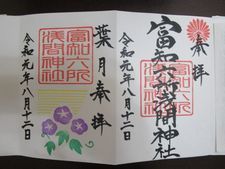 奉拝
富知六所浅間神社
富知六所
浅間神社
令和元年八月十二日
葉月奉拝
富知六所
浅間神社
令和元年八月十二日